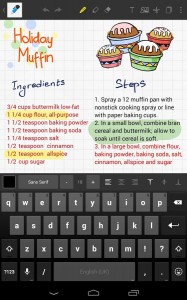 Holiday
Muffin
Ingredients
3/4 cups buttermilk low-fat
1 1/4 cup flour, all-purpose
1 1/2 teaspoon baking powder
1 1/2 teaspoon baking soda
1 1/8 teaspoon salt
1/2 teaspoon cinnamon
1/2 teaspoon allspice
1/2 cup sugar
Steps
1. Spray a 12 muffin pan with
nonstick cooking spray or line
with paper baking cups.
2. In a small bowl, combine bran
cereal and buttermilk; allow to
soak until cereal is soft.
3. In a large bowl, combine flour,
baking powder, baking soda, salt,
cinnamon, allspice and sugar
Sans Serif
B
q w e r t y u i o p
a s d f g h j k l
z x c v b n m
?123